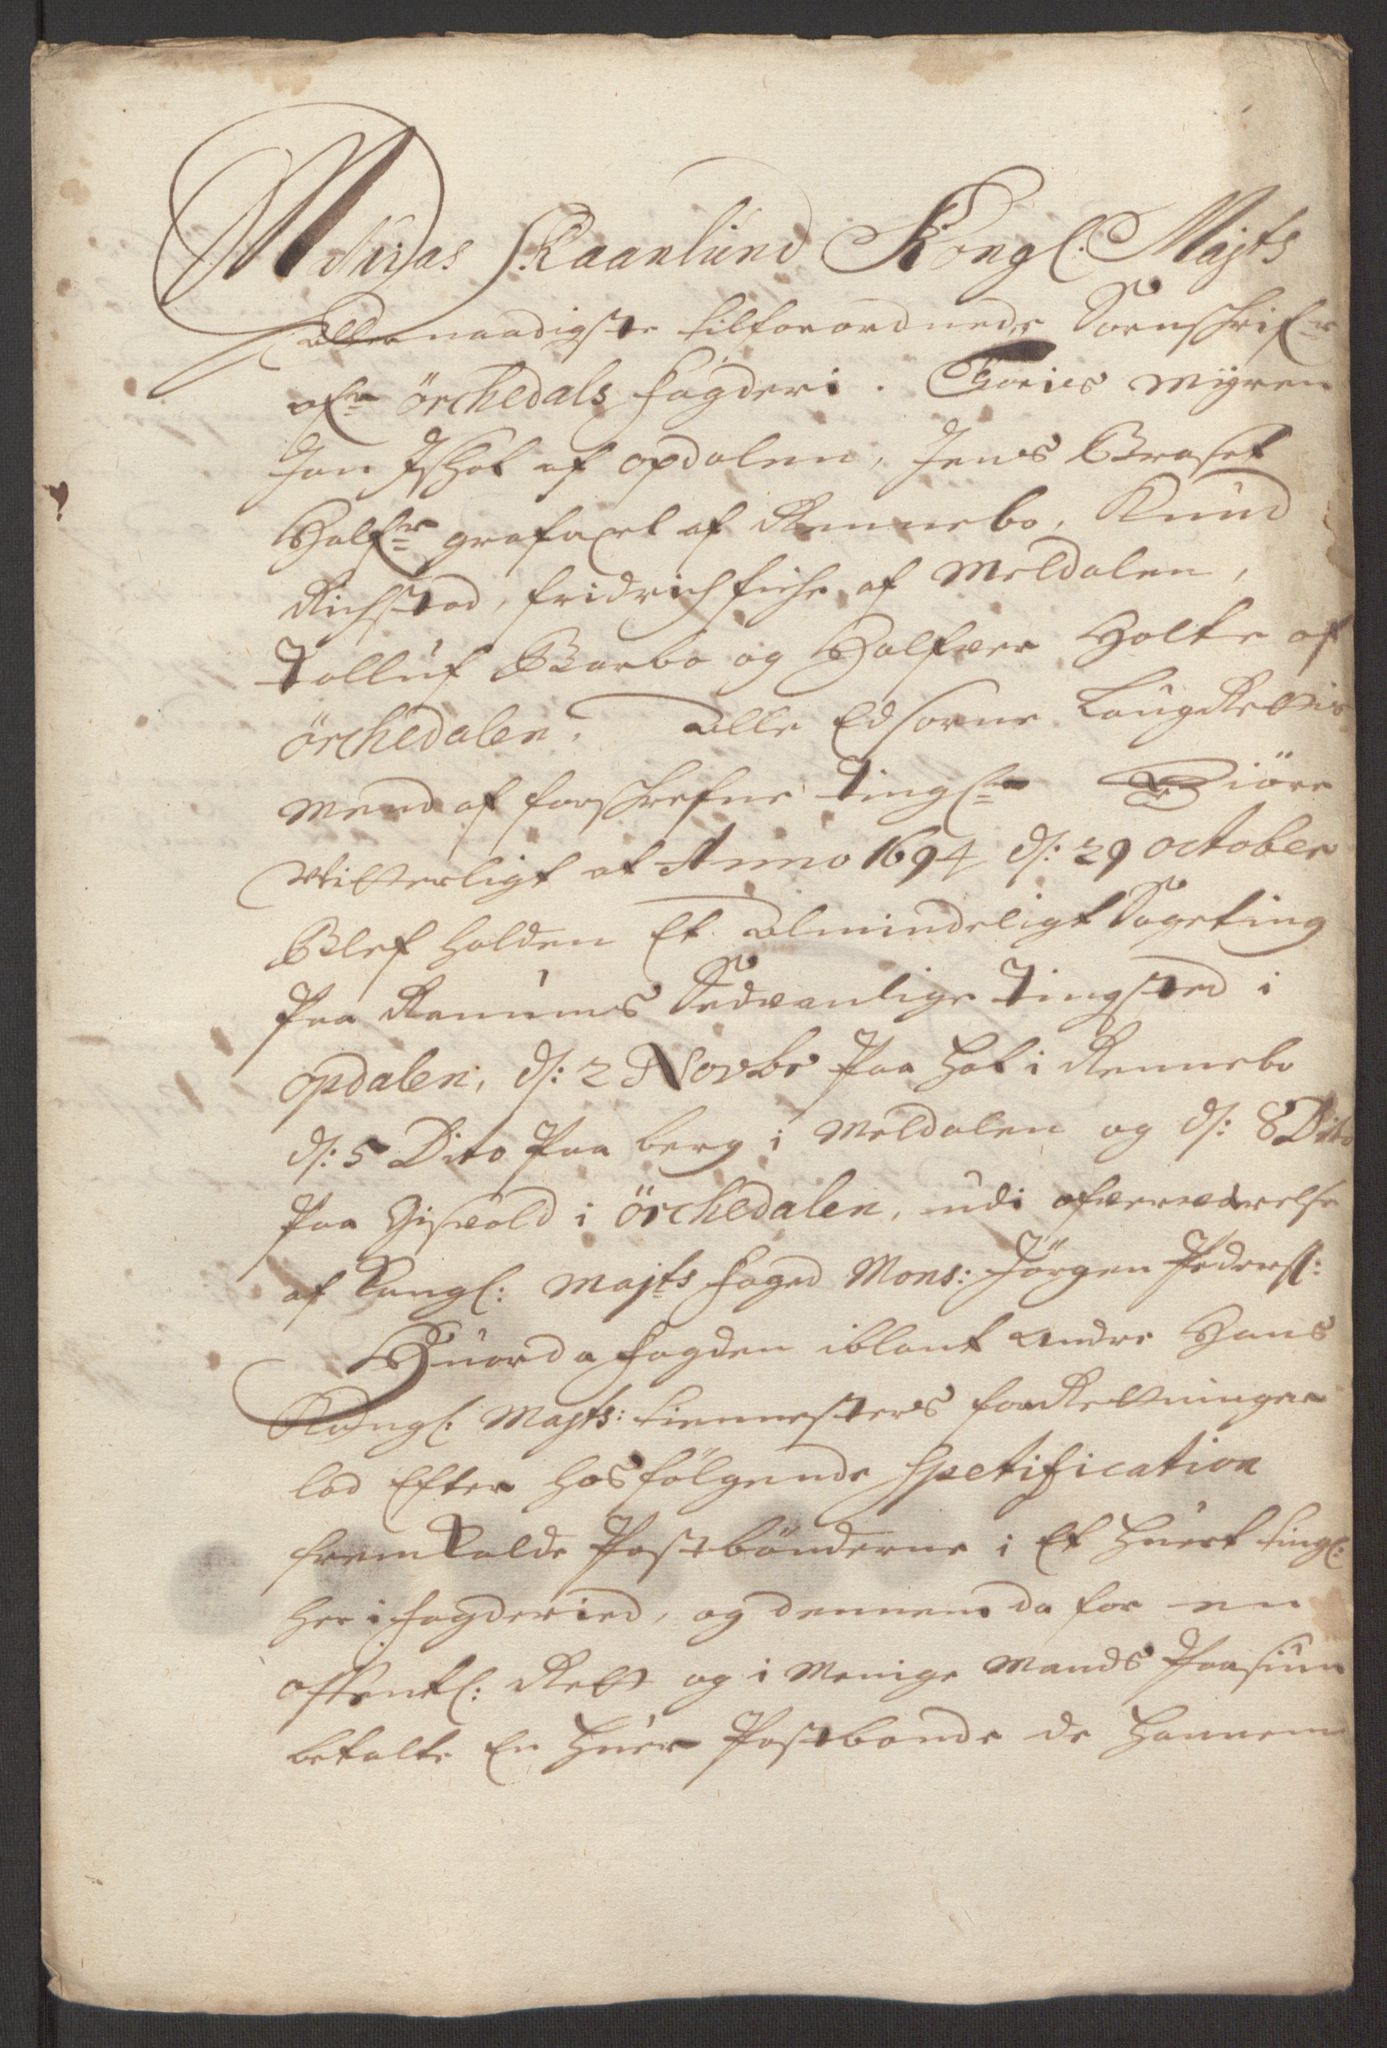 Mathias Skaanlund Kongl: Majts
Allernaadigste tilforordnede Sorenschrifr
ofr Örchedals fogderi. Tories Myren
Jon Ishol af opdalen, Jens Braset
Halfr grefaxel af Rennebo, Knud
Richstad, fridrich fiche af Meldalen,
Tolluf Barbo og Halfver Holte af
Örchedalen. Alle Edsorne LaugRettis
Mend af forschrefne tingl: Giöre
Vitterligt at Anno 1694 d: 29 October
Blef holden Et Almindeligt Sageting
Paa Renums Sedvanlige tingsted i
opdalen, d: 2 Novbr Paa Hol i Rennebo
d: 5 Dito Paa berg i Meldalen og d: 8 Dito
Paa Gisvold i Örchedalen, udi ofververelse
af Kongl: Majts foged Mons: Jörgen Peders:
Huor da fogden iblant andre Hans
Kongl: Majts: tiennesters forRettninger
lod Efter hosfölgende Spetification
fremKalde Postbönderne i Et huert tingl:
her i fogderied, og dennem da for en
offentl: Rett og i Menige Mands Paasiun
betalte En huer Postbonde de hannem